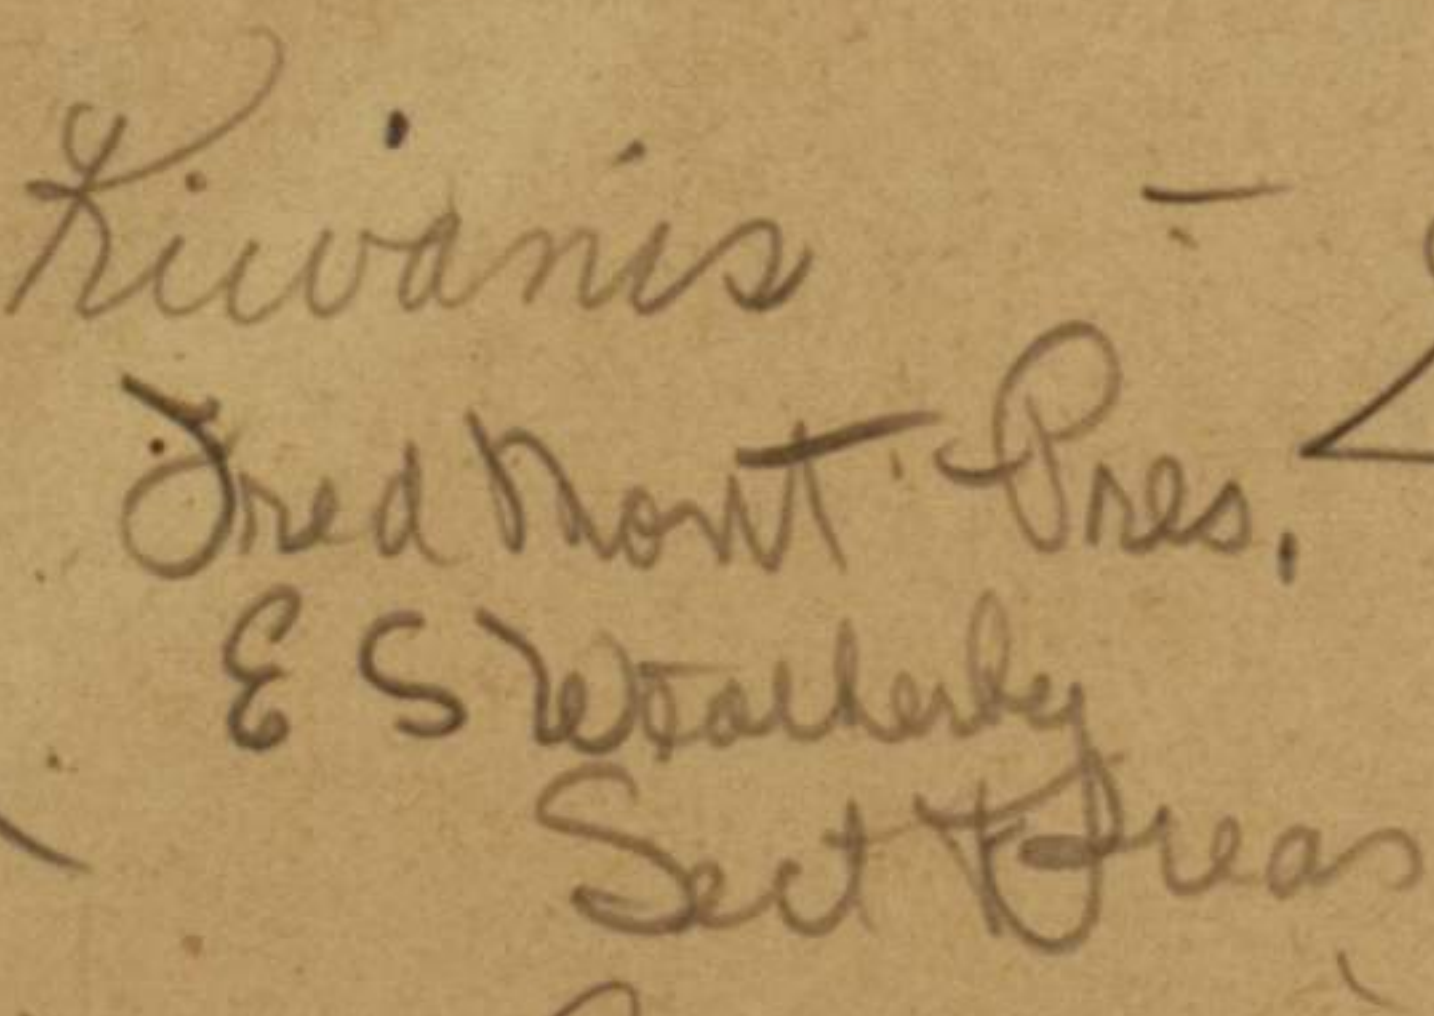 Kiwanis
Fred Mont Pres.
E S Weatherby
Sect Treas